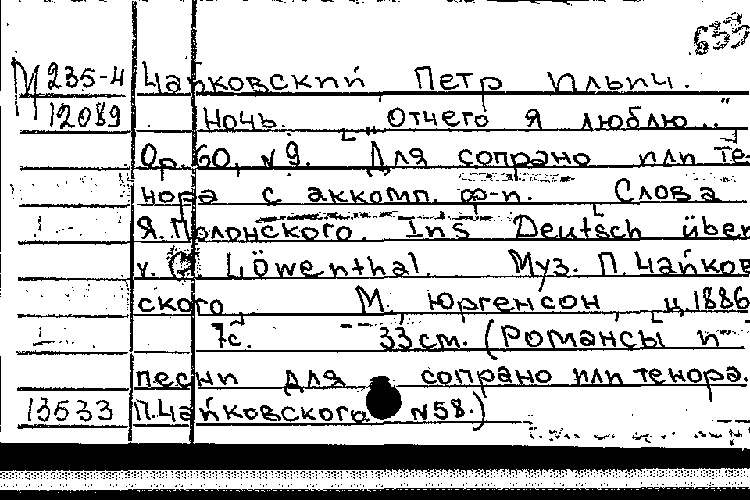 633
М 235-4 Чайковский Петр Ильич.
12089 Ночь. ["Отчего я люблю.."]
Op. 60, N 9. Для сопрано или те-
нора с аккомп. ф-п. Слова
Я. Полонского. Ins Deutsch über
v. Löwenthal. Муз. П. Чайков
ского, М., Юргенсон, ц. 1886
7с. 33 см. (Романсы и
песни для сопрано или тенора.
13533 П. Чайковского N 58.)